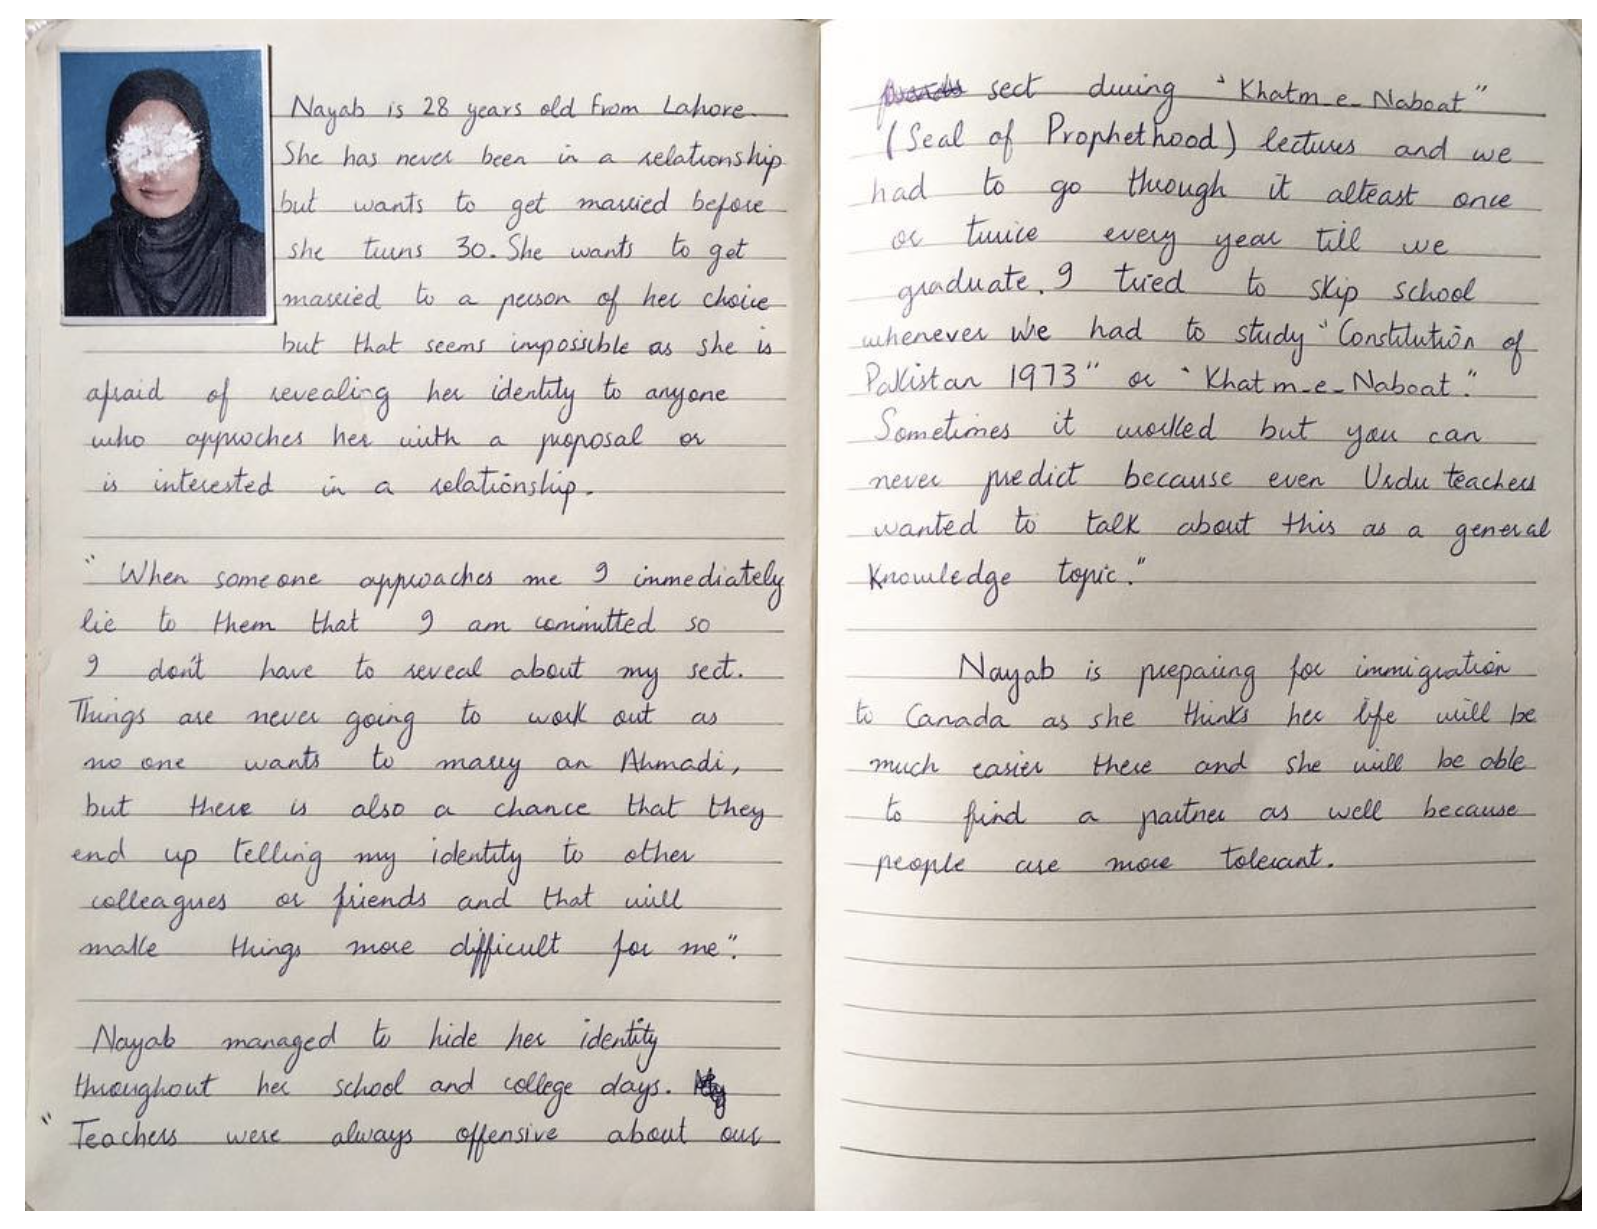 Nayab is 28 years old from Lahore.
She has never been in a relationship
but wants to get married before
she turns 30. She wants to get
married to a person of her choice
but that seems impossible as she is
afraid of revealing her identity to anyone
who approches her with a proposal or
is interested in a relationship.
"When someone approaches me I immediately
lie to them that I am committed so
I don't have to reveal about my sect.
Things are never going to work out as
no one wants to marry an Ahmadi,
but there is also a chance that they
end up telling my identity to other
colleagues or friends and that will
make things more difficult for me".
Nayab managed to hide her identity
throughout her school and college days.
"Teachers were always offensive about our
sect during "Khatm-e-Naboat"
(Seal of Prophethood) lectures and we
had to go through it alteast once
or twice every year till we
graduate. I tried to skip school
whenever we had to study "Constitution of
Pakistan 1973" or "Khatm-e-Naboat."
Sometimes it worked but you can
never predict because even Urdu teachers
wanted to talk about this as a general
knowledge topic."
Nayab is preparing for immigration
to Canada as she thinks her life will be
much easier there and she will be able
to find a partner as well because
people are more tolerant.